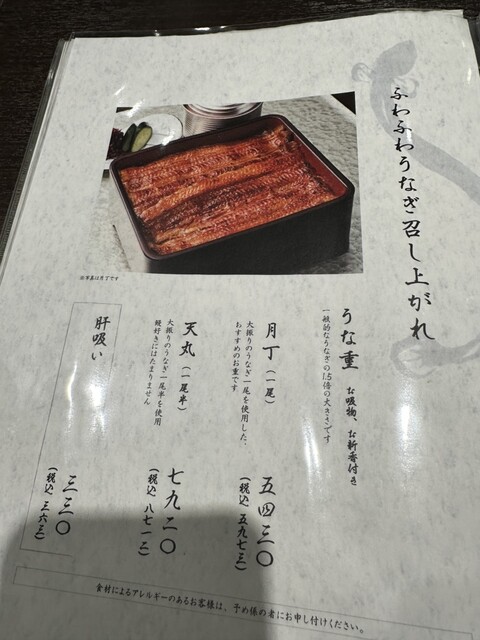 ふわふわうなぎ召し上がれ
※写真は月丁です
うな重 お吸物、お新香付き
一般的なうなぎの1.5倍の大きさです
月丁（一尾）
大振りのうなぎ一尾を使用した、
おすすめのお重です
五四三〇
（税込 五九七三）
天丸（一尾半）
大振りのうなぎ一尾半を使用
鰻好きにはたまりません
七九二〇
（税込 八七一二）
肝吸い
三三〇
（税込 三六三）
食材によるアレルギーのあるお客様は、予め係の者にお申し付けください。